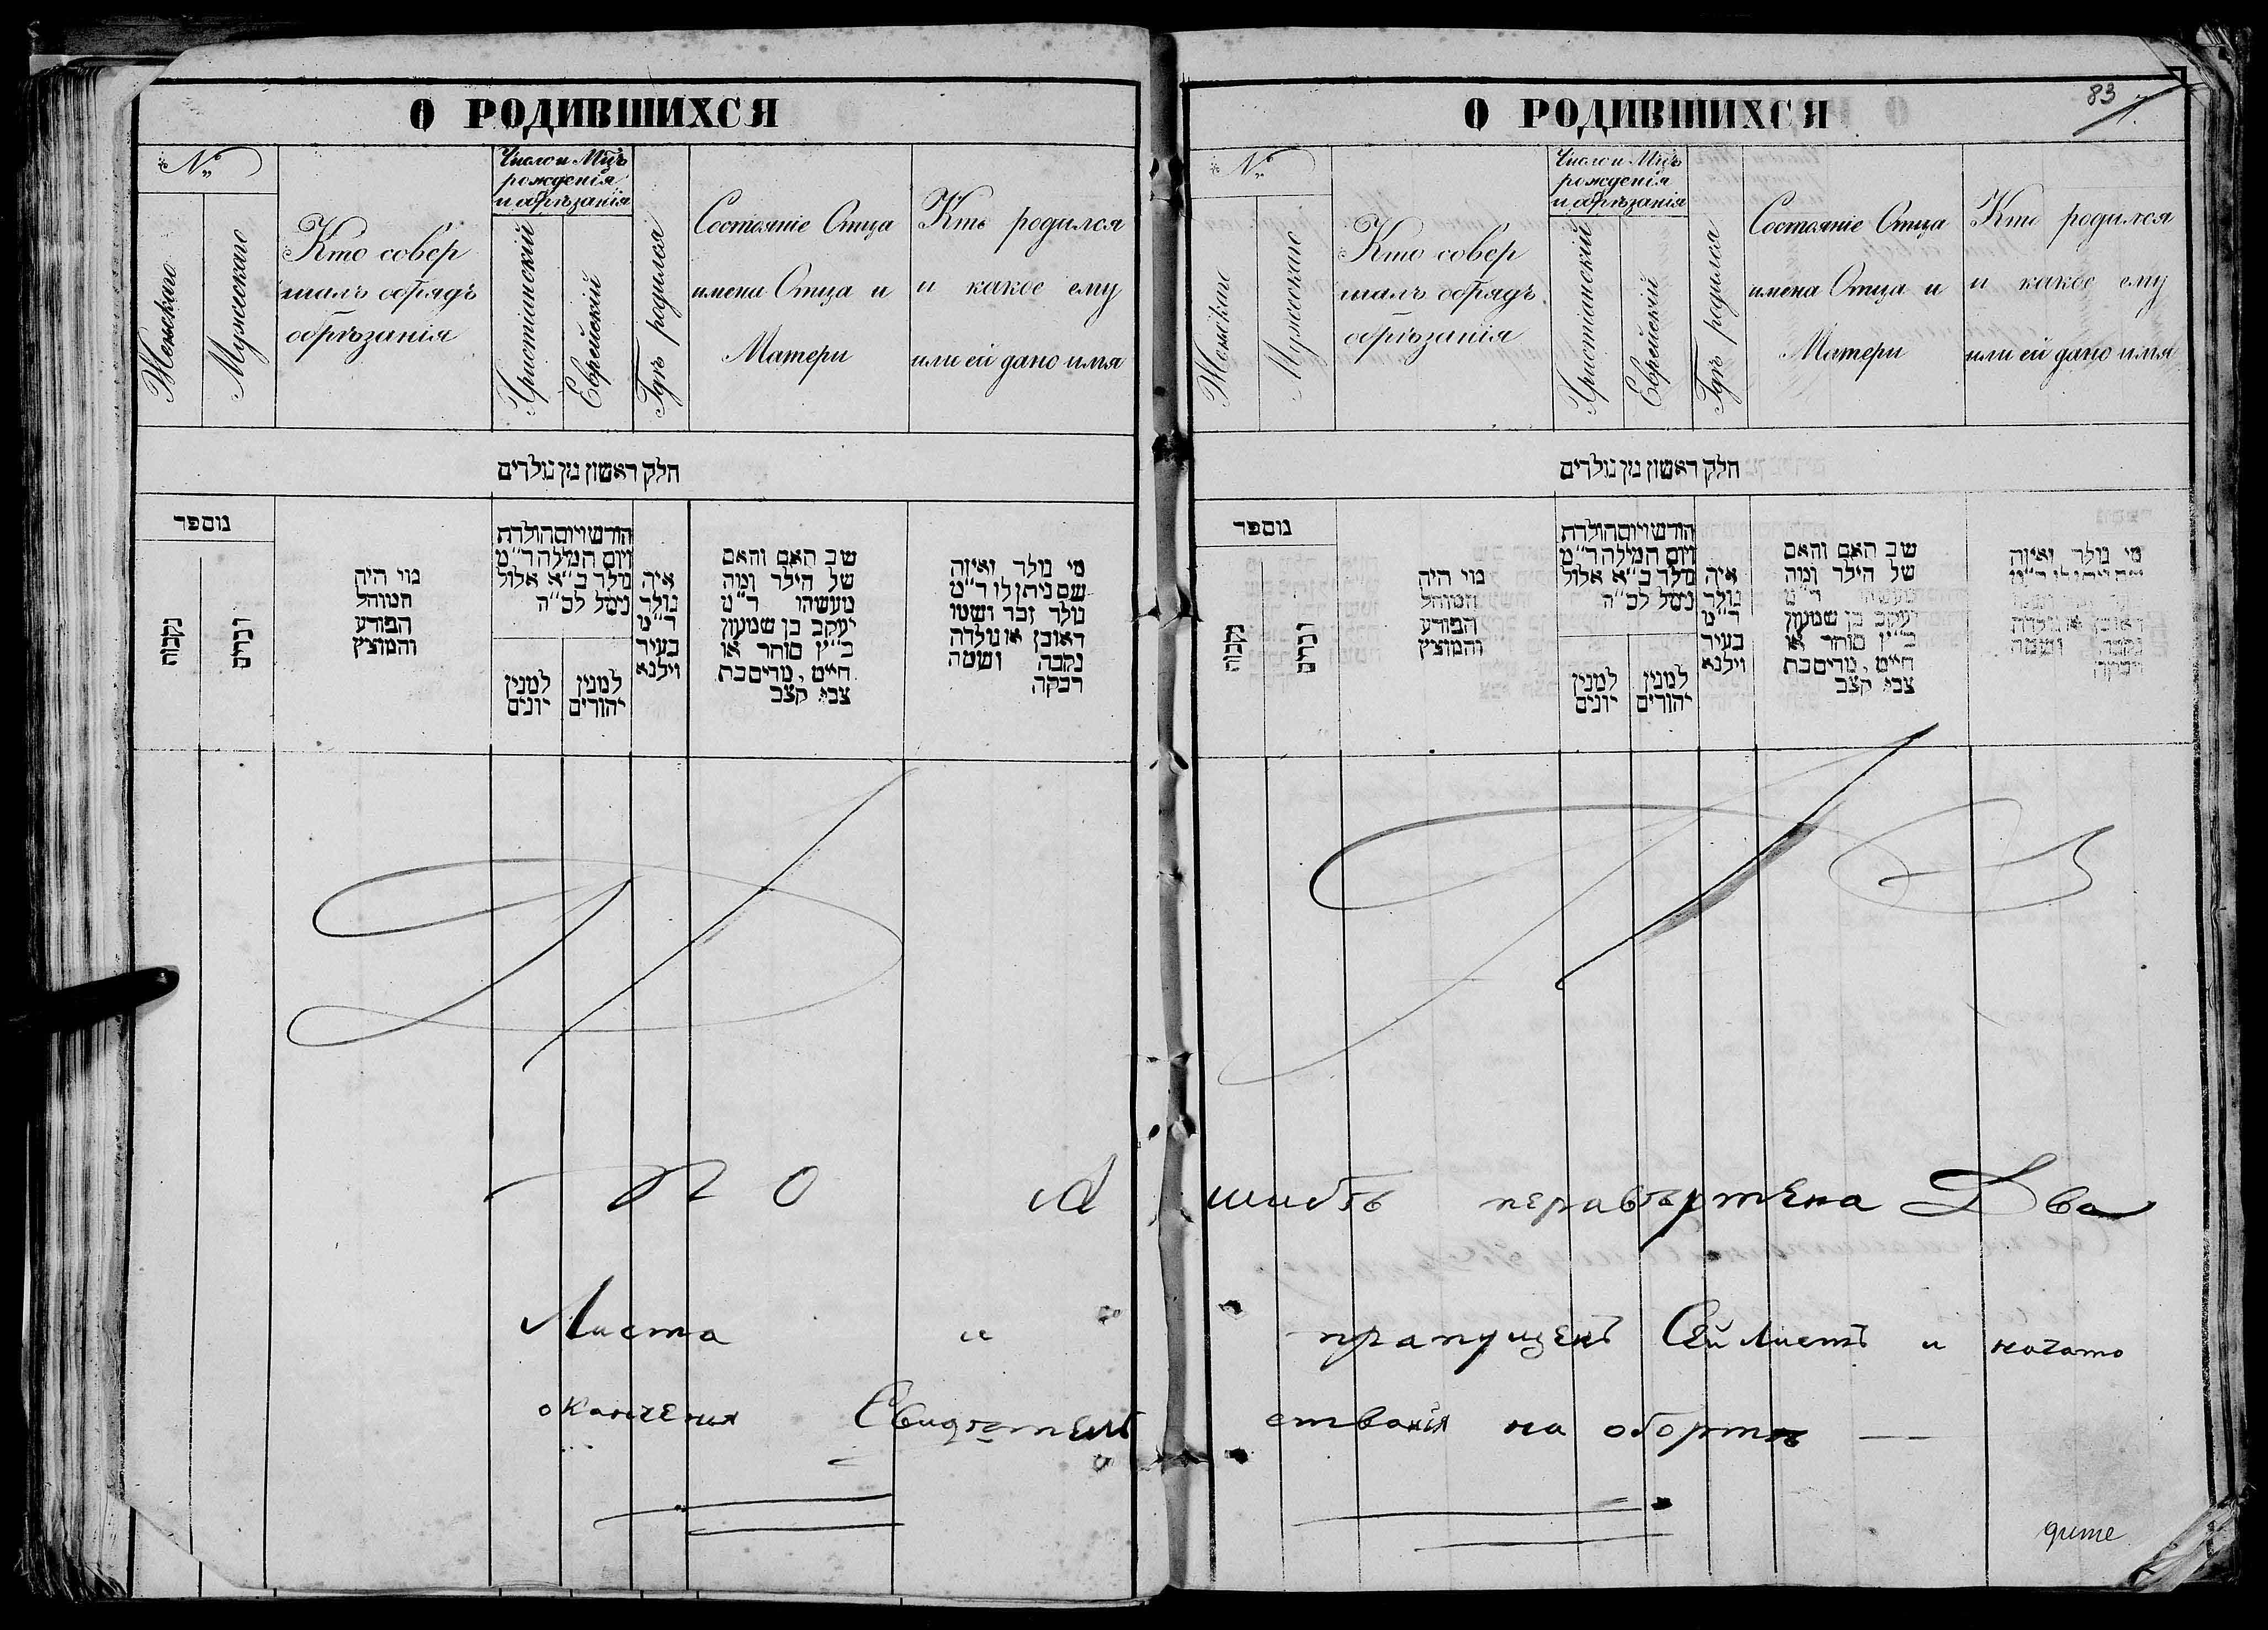 О РОДИВШИХСЯ
№
Женскаго
Мужескаго
Кто совер
шалъ обрядъ
обрѣзанія
Число и Мѣц̃ъ
рожденія
и обрѣзанія
Христіанскій
Еврейскій
Гдѣ родился
Состояніе Отца
имена Отца и
Матери
Кто родился
и какое ему
или ей дано имя
חלק ראשון מן נולדים
מספר
נקבות
זכרים
מי היה
המוהל
הפורע
והמוצץ
חודש ויום הולדת
ויום המילה ד״מ
נולד כ״א אלול
נימל לכ״ה
למנין
יונים
למנין
יהודים
איה
נולד
ד״מ
בעיר
וילנא
שב האם והאם
של הילד ומה
מעשהו ד״מ
יעקב בן שמעון
כ״ץ סוחר או
חייט, מרים בת
צבי קצב
מי נולד ואיזה
שם ניתן לו ד״מ
נולד זכר ושמו
ראובן או נולדה
נקבה ושמה
רבקה
по о
Листа и
оканченія Свидѣтель
О РОДИВШИХСЯ
83
№
Женскаго
Мужескаго
Кто совер
шалъ обрядъ
обрѣзанія
Число и Мѣц̃ъ
рожденія
и обрѣзанія
Христіанскій
Еврейскій
Гдѣ родился
Состояніе Отца
имена Отца и
Матери
Кто родился
и какое ему
или ей дано имя
חלק ראשון מן נולדים
מספר
נקבות
זכרים
מי היה
המוהל
הפורע
והמוצץ
חודש ויום הולדת
ויום המילה ד״מ
נולד כ״א אלול
נימל לכ״ה
למנין
יונים
למנין
יהודים
איה
נולד
ד״מ
בעיר
וילנא
שב האם והאם
של הילד ומה
מעשהו ד״מ
יעקב בן שמעון
כ״ץ סוחר או
חייט, מרים בת
צבי קצב
מי נולד ואיזה
שם ניתן לו ד״מ
ראובן או נולדה
נקבה ושמה
רבקה
шибкѣ Два
прапущенъ Сей Листъ и начато
стванія на обортѣ —